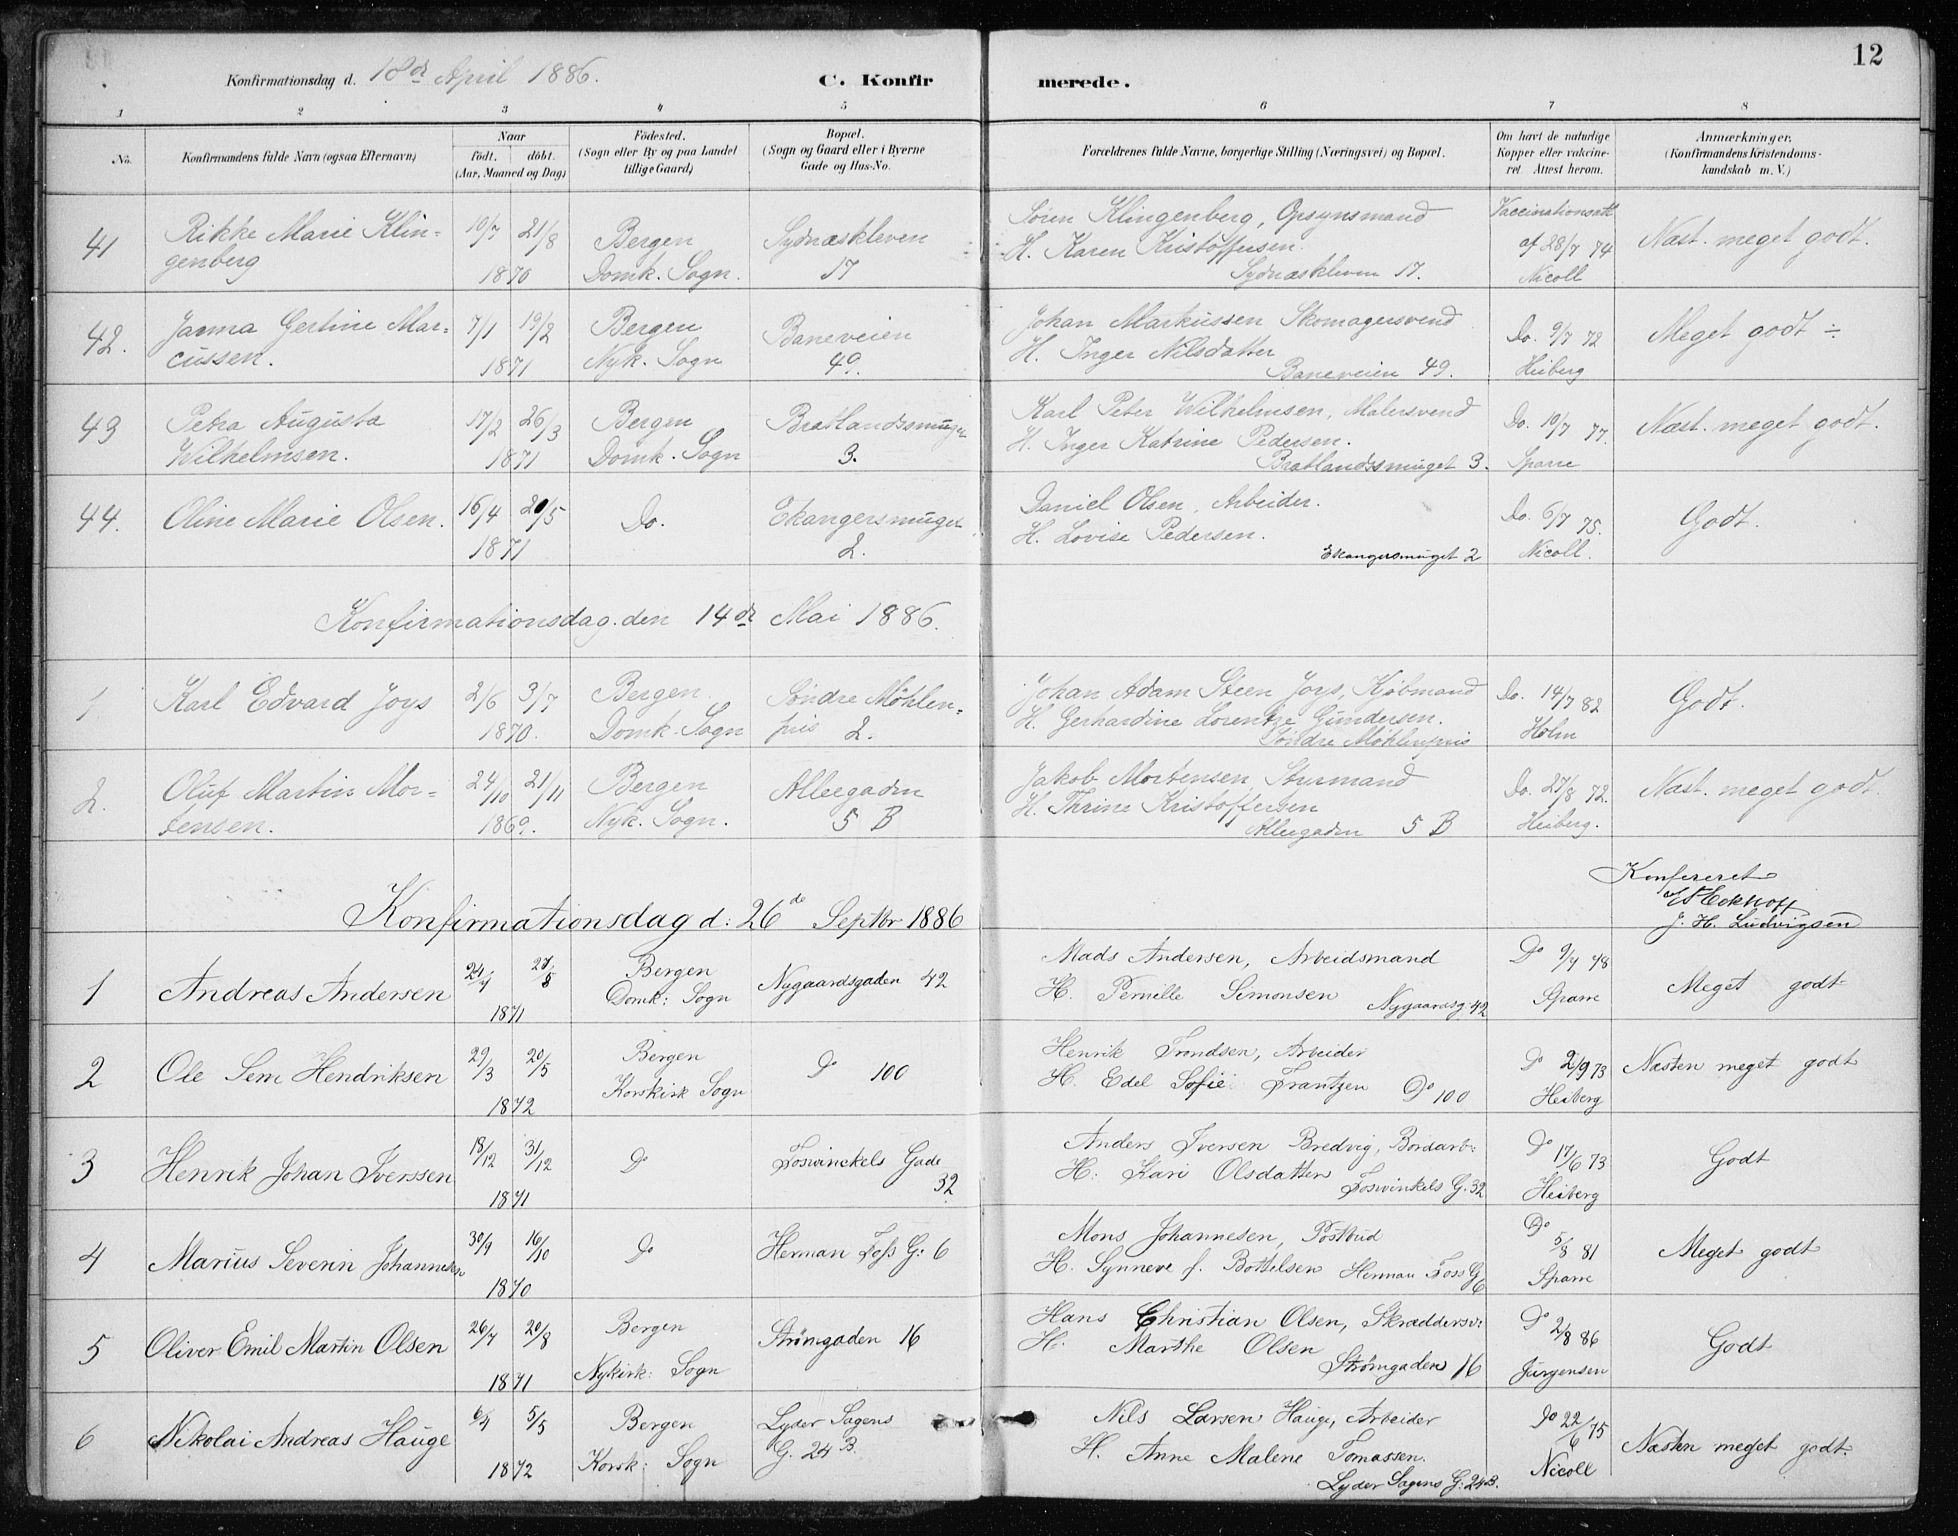 12
Konfirmationsdag d. 18de April 1886. C. Konfirmerede.
1 2 3 4 5 6 7 8
No. Konfirmandens fulde Navn (ogsaa Efternavn) Naar födt. döbt. (Aar, Maaned og Dag) Födested. (Sogn eller By og paa Landet tillige Gaard) Bopæl. (Sogn og Gaard eller i Byerne Gade og Hus-No. Forældrenes fulde Navne, borgerlige Stilling (Næringsvei) og Bopæl. Om havt de naturlige Kopper eller vakcineret. Attest herom. Anmærkninger. (Konfirmandens Kristendomskundskab m. V.)
41 Rikke Marie Klin- 10/7 21/8 Bergen Sydnæskleven Sören Klingenberg, Opsynsmand Vaccinationsatt
genberg 1870 Domk. Sogn. 17 H. Karen Kristoffersen. af 28/7 74 Næst. meget godt.
Sydnæskleven 17. Nicoll
42. Janna Gertine Mar- 7/1 19/2 Bergen Baneveien Johan Markussen Skomagersvend Do. 9/7 72 Meget godt ÷
cussen. 1871 Nyk. Sogn 49. H. Inger Nilsdatter
Baneveien 49. Heiberg
43 Petra Augusta 17/2 26/3 Bergen Bratlandssmuget Karl Peter Wilhelmsen, Malersvend Do. 10/7 77. Næst. meget godt.
Wilhelmsen. 1871 Domk. Sogn 3. H. Inger Katrine Pedersen.
Bratlandssmuget 3. Sparre
44. Oline Marie Olsen. 16/4 20/5 Do. Ekangersmuget Daniel Olsen, Arbeider. Do. 6/7 75. Godt.
1871 2. H. Lovise Pedersen. Nicoll.
Ekangersmuget 2
Konfirmationsdag. den 14de Mai 1886.
1 Karl Edvard Joys 2/6 3/7 Bergen Söndre Möhlen- Johan Adam Steen Joys, Kjöbmand Do. 14/7 82 Godt.
1870. Domk. Sogn pris 2. H. Gerhardine Lorentze Gundersen. Holm
Söndre Möhlenpris
2. Oluf Martin Mor- 24/10 21/11 Bergen Alleegaden Jakob Mortensen Styrmand Do. 27/8 72. Næst. meget godt.
tensen. 1869. Nyk. Sogn. 5 B H. Thrine Kristoffersen
Alleegaden 5 B Heiberg.
Konfereret
Eckhoff
Konfirmationsdag d: 26de Septbr 1886 J. H. Ludvigsen
1 Andreas Andersen 24/4 27/8 Bergen Nygaardsgaden 42 Mads Andersen, Arbeidsmand Do 9/7 78 Meget godt
1871 Domk: Sogn H. Pernille Simonsen Nygaardsg. 42 Sparre
2 Ole Sem Hendriksen 29/3 20/5 Bergen Do 100 Henrik Trondsen, Arbeider Do 2/9 73 Næsten meget godt
1872 Korskirk Sogn H. Edel Sofie Frantzen Do 100 Heiberg
3 Henrik Johan Iverssen 18/12 31/12 Do Foswinckels Gade Anders Iversen Bredvig, Bordarb: Do 17/6 73 Godt
1871 32 H: Kari Olsdatter Foswinkels G. 32 Heiberg
4 Marius Severin Johannesen 30/9 16/10 Do Herman Foss G: 6 Mons Johannesen, Postbud Do 5/8 81 Meget godt
1870 H. Synneve f. Bottelsen Herman Foss G 6 Sparre
5 Oliver Emil Martin Olsen 26/7 20/8 Bergen Strömgaden 16 Hans Christian Olsen, Skræddersv: Do 2/8 86 Godt
1871 Nykirk: Sogn H. Marthe Olsen Strömgaden 16 Jürgensen
6 Nikolai Andreas Hauge 6/4 5/5 Bergen Lyder Sagens Nils Larsen Hauge, Arbeider Do 22/6 75 Næsten meget godt.
1872 Korsk: Sogn G. 24 B. H. Anne Malene Tomassen. Nicoll
Lyder Sagens G. 24B.